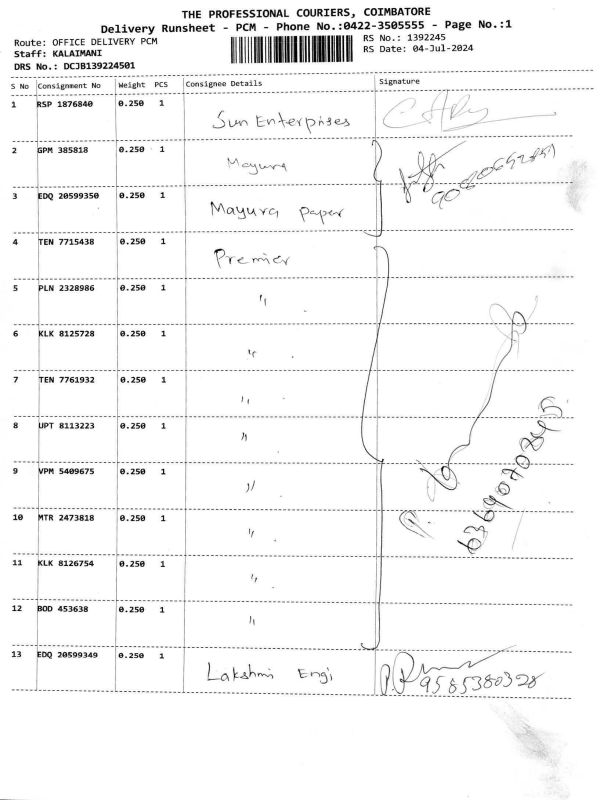 THE PROFESSIONAL COURIERS, COIMBATORE
Delivery Runsheet - PCM - Phone No.:0422-3505555 - Page No.:1
Route: OFFICE DELIVERY PCM
RS No.: 1392245
Staff: KALAIMANI
RS Date: 04-Jul-2024
DRS No.: DCJB139224501
S No Consignment No Weight PCS Consignee Details Signature
1 RSP 1876840 0.250 1 Sun Enterprises
2 GPM 385818 0.250 1 Mayura
3 EDQ 20599350 0.250 1 Mayura paper
4 TEN 7715438 0.250 1 Premier
5 PLN 2328986 0.250 1 "
6 KLK 8125728 0.250 1 "
7 TEN 7761932 0.250 1 "
8 UPT 8113223 0.250 1 "
9 VPM 5409675 0.250 1 "
10 MTR 2473818 0.250 1 "
11 KLK 8126754 0.250 1 "
12 BOD 453638 0.250 1 "
13 EDQ 20599349 0.250 1 Lakshmi Engi 9585380328